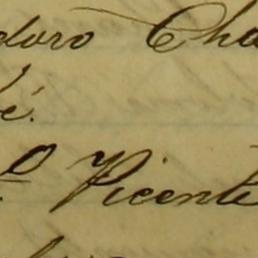 duro Cha
é.
º Vicente